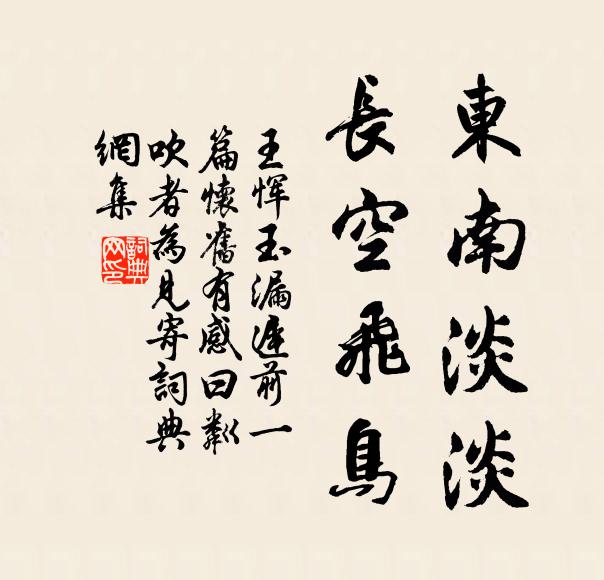 東南淡淡
長空飛鳥
王惲玉漏遲前一
篇懷舊有感曰鄰
吹者為見寄詞典
網集
詞典网印